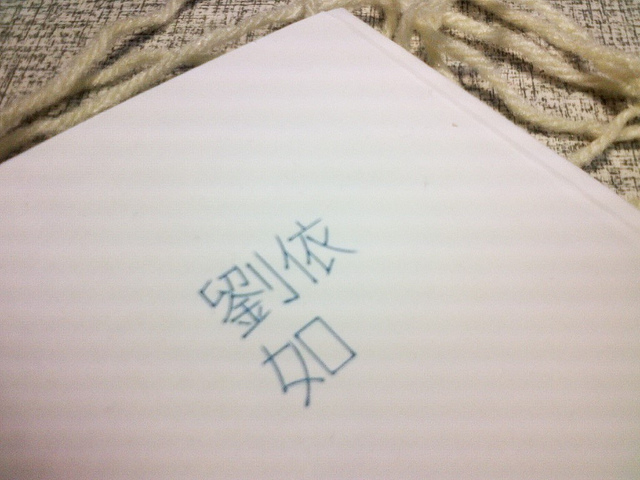 劉依
如